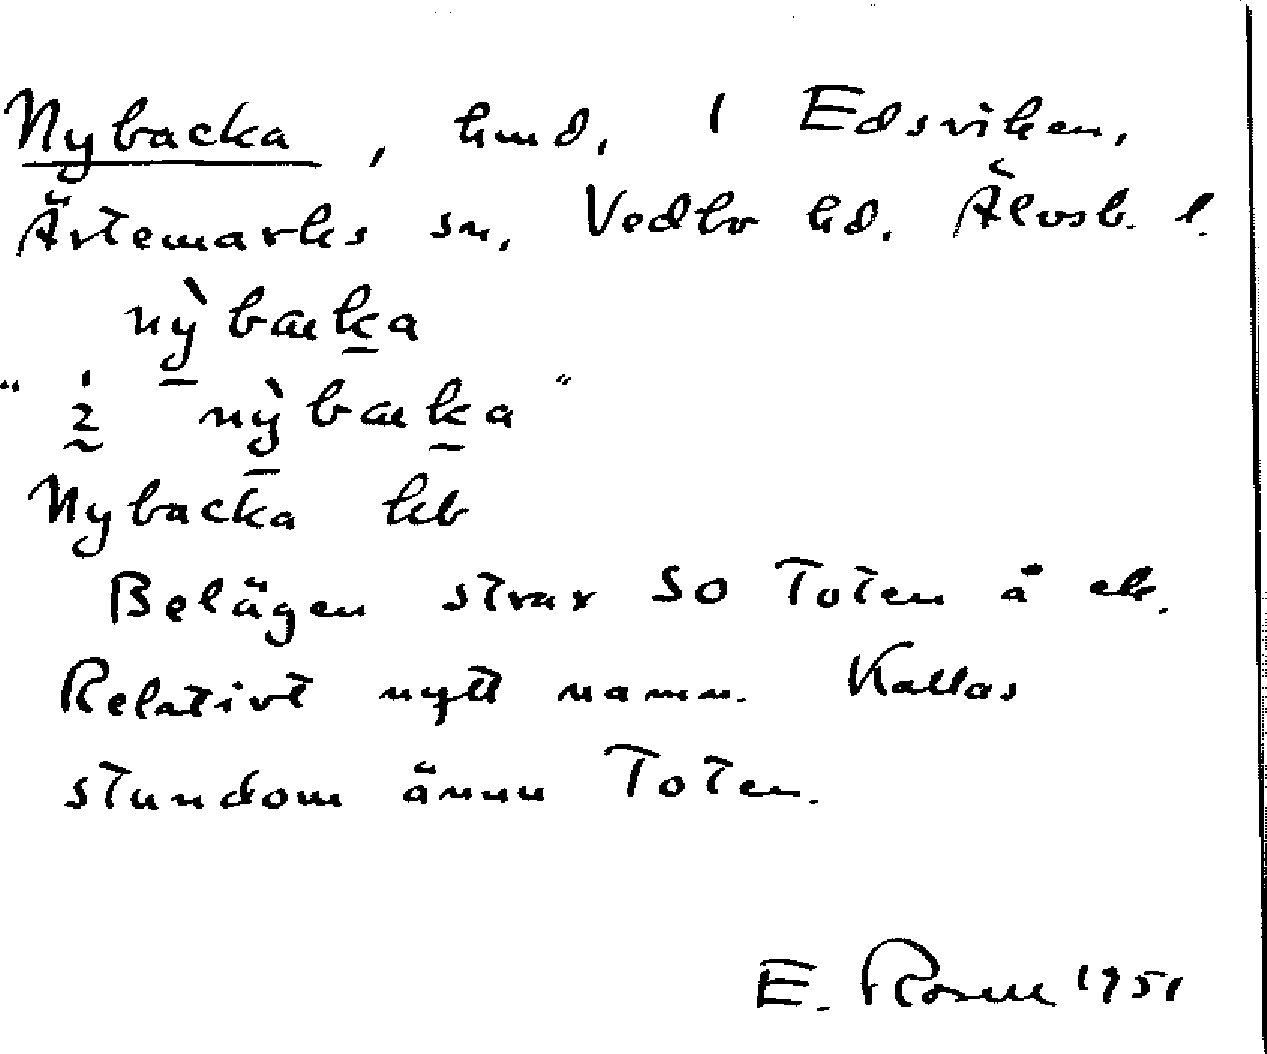 Nybacka, hmd, 1 Edsviken,
Ärtemarks sn, Vedbo hd. Älvsb. l.
nỳbacka
" i nỳbacka "
Nybacka kb
Belägen strax SO Toten å ek.
Relativt nytt namn. Kallas
stundom ännu Toten.
E. Rosell 1951